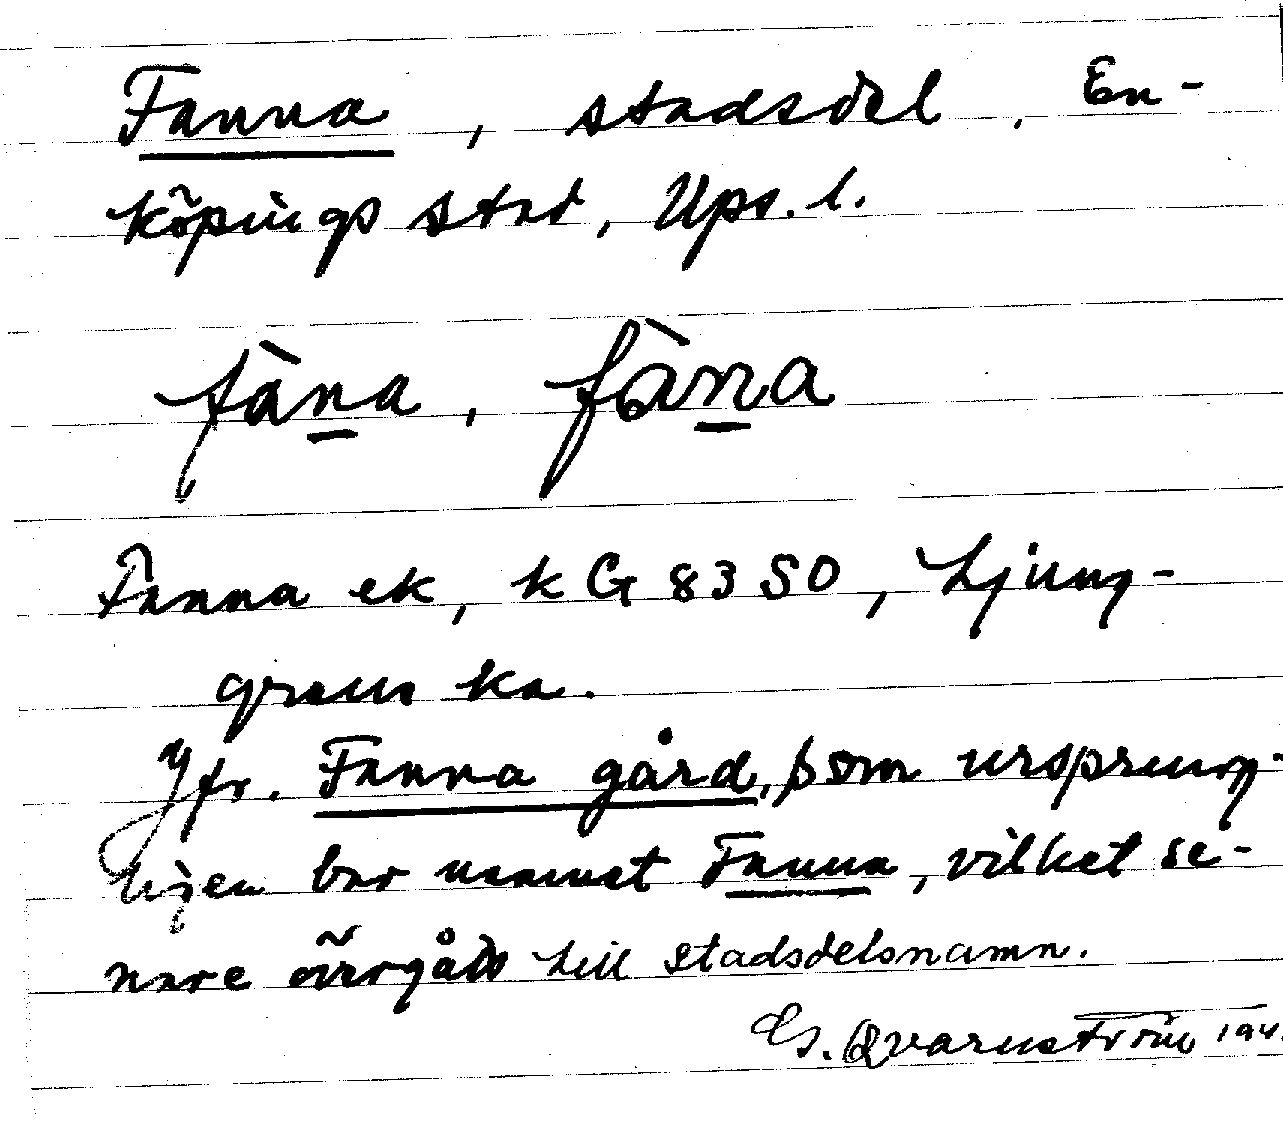 Fanna, stadsdel, En-
köpings stad, Ups. l.
fàna, fàna
Fanna ek, kG 8350, Ljung-
grens ka.
Jfr. Fanna gård, som ursprung-
ligen bar namnet Fanna, vilket se-
nare övergått till stadsdelsnamn.
G. Qvarnström 194